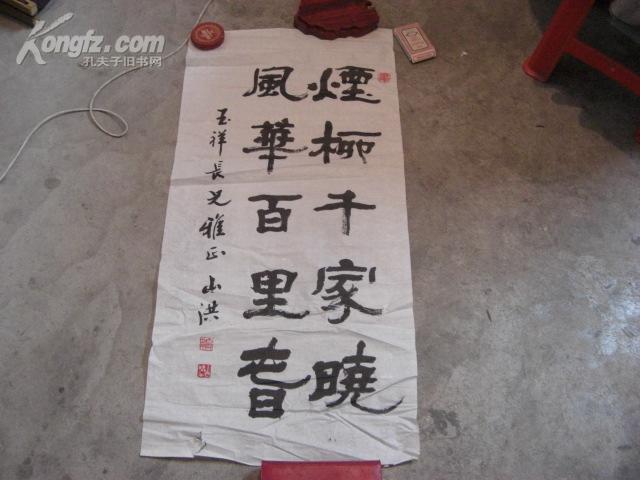 Kongfz.com
孔夫子旧书网
煙柳千家曉
風華百里旾
玉祥長兄雅正 山洪